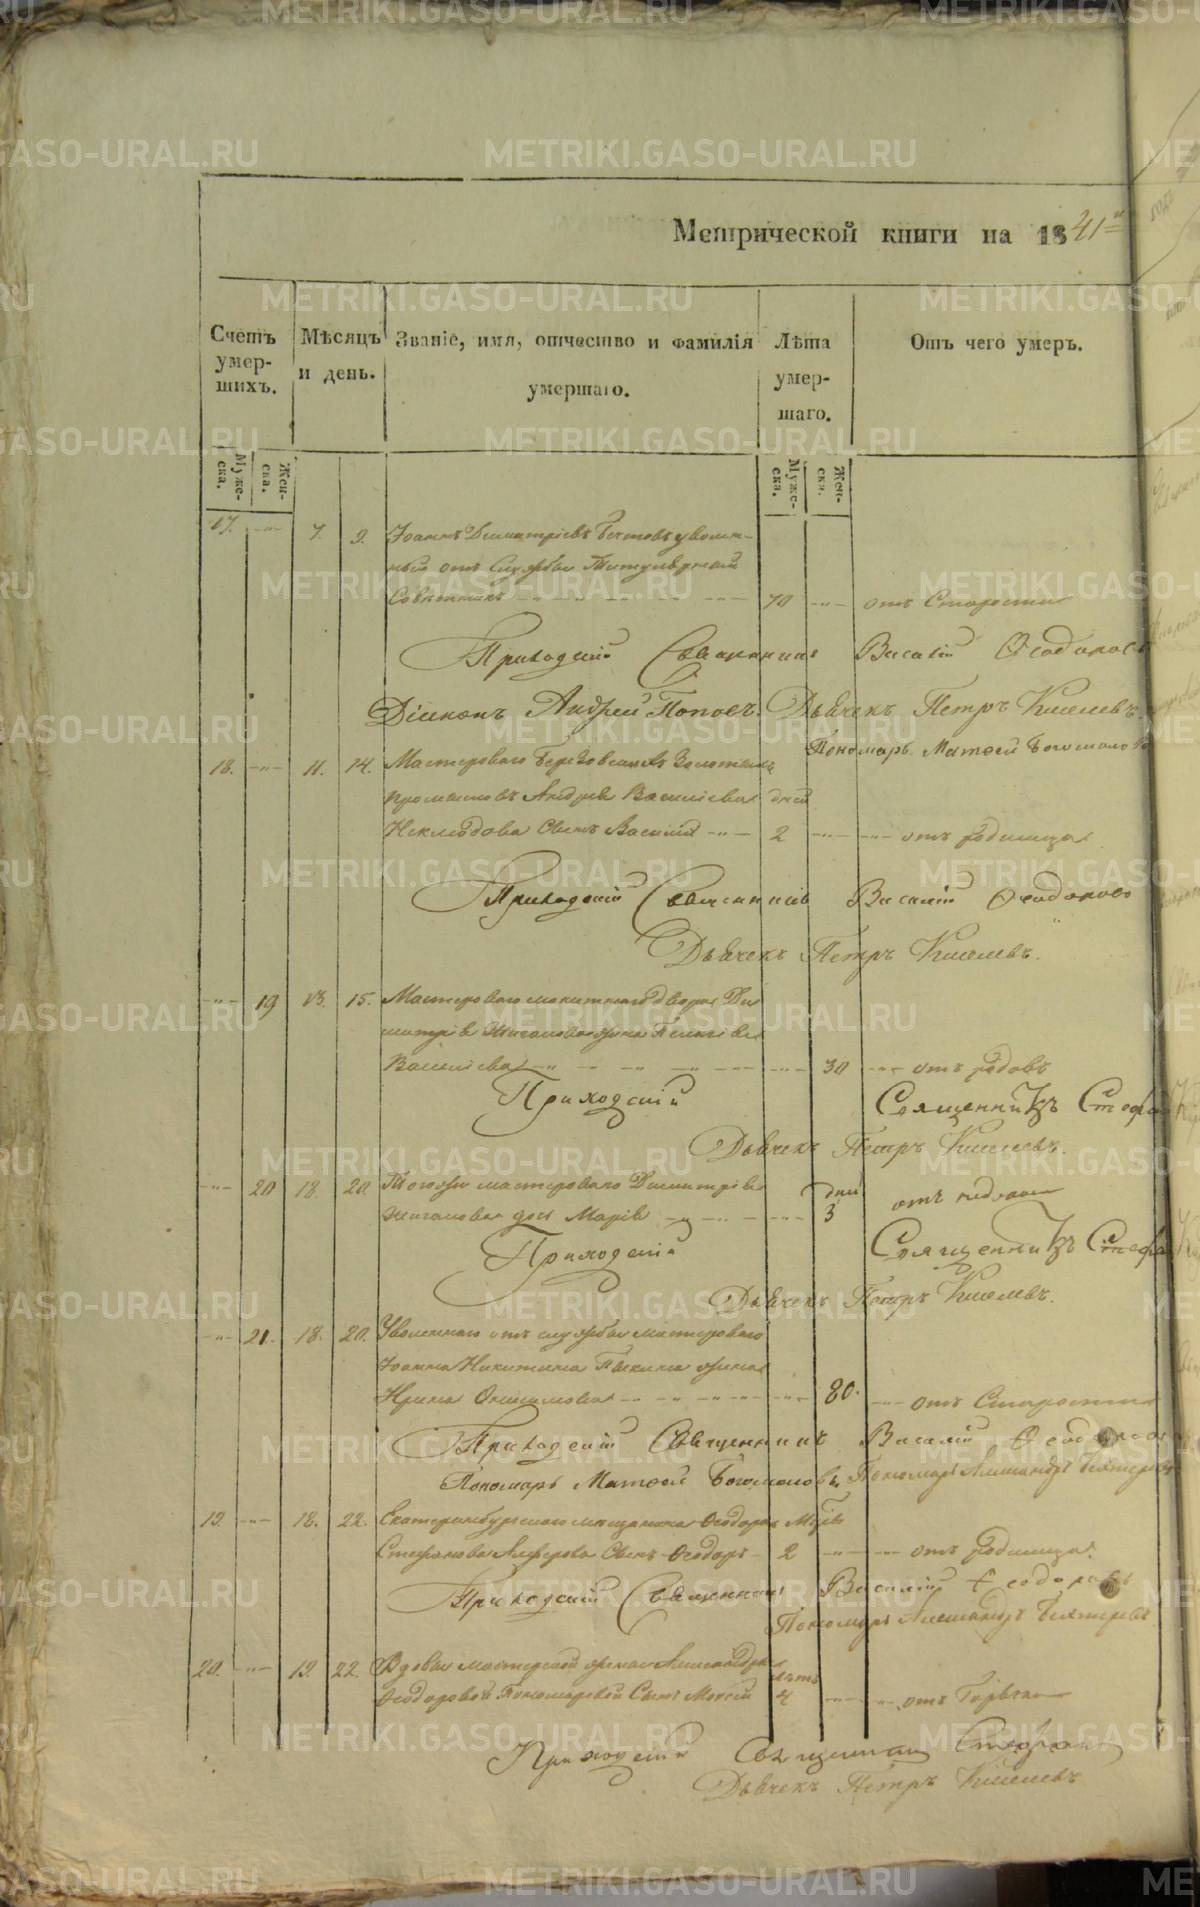 Метрической книги на 1841й
Счетъ умер-шихъ.
Мѣсяцъ и день.
Званіе, имя, отчество и фамилія умершаго.
Лѣта умер-шаго.
Отъ чего умеръ.
Муже-ска.
Жен-ска.
Муже-ска.
Жен-ска.
17. 7. 9. Іоаннъ Димитріевъ уволен-
ный отъ службы Титулярный
Совѣтникъ 70 отъ Старости
Приходскій Священникъ Василій Ѳеодоровъ
Діаконъ Андрей Поповъ. Дьячекъ Петръ Киселевъ.
Пономарь Матѳей Богомоловъ
18. 11. 14. Мастероваго Березовскихъ Золотыхъ
промысловъ Андрея Васильева дней
Неклюдова Сынъ Василій 2 отъ родимца
Приходскій Священникъ Василій Ѳеодоровъ
Дьячекъ Петръ Киселевъ.
19 13. 15. Мастероваго монетнаго двора Ди
митрія жена Пелагія
Васильева 30 отъ родовъ
Приходскій Священникъ Стефа
Дьячекъ Петръ Киселевъ.
20 18. 20. Тогоже мастероваго Димитрія дни
дочь Марія 3 отъ
Приходскій Священникъ Стефа
Дьячекъ Петръ Киселевъ.
21. 18. 20. Уволеннаго отъ службы мастероваго
Іоанна Никитина жена
Ирина 80. отъ Старости
Приходскій Священникъ Василій Ѳеодоровъ
Пономарь Матѳей Богомоловъ, Пономарь Александръ
19. 18. 22. Екатеринбургскаго мещанина Ѳеодора
Стефанова Сынъ Ѳеодоръ 2 отъ родимца.
Приходскій Священникъ Василій Ѳеодоровъ
Пономарь Александръ
20. 19. 22. Вдовы мастерской жены Александры лѣтъ
Ѳеодоровой Пономаревой Сынъ Моисей 4 отъ Горячки
Приходскій Священникъ Стефан
Дьячекъ Петръ Киселевъ
METRIKI.GASO-URAL.RU